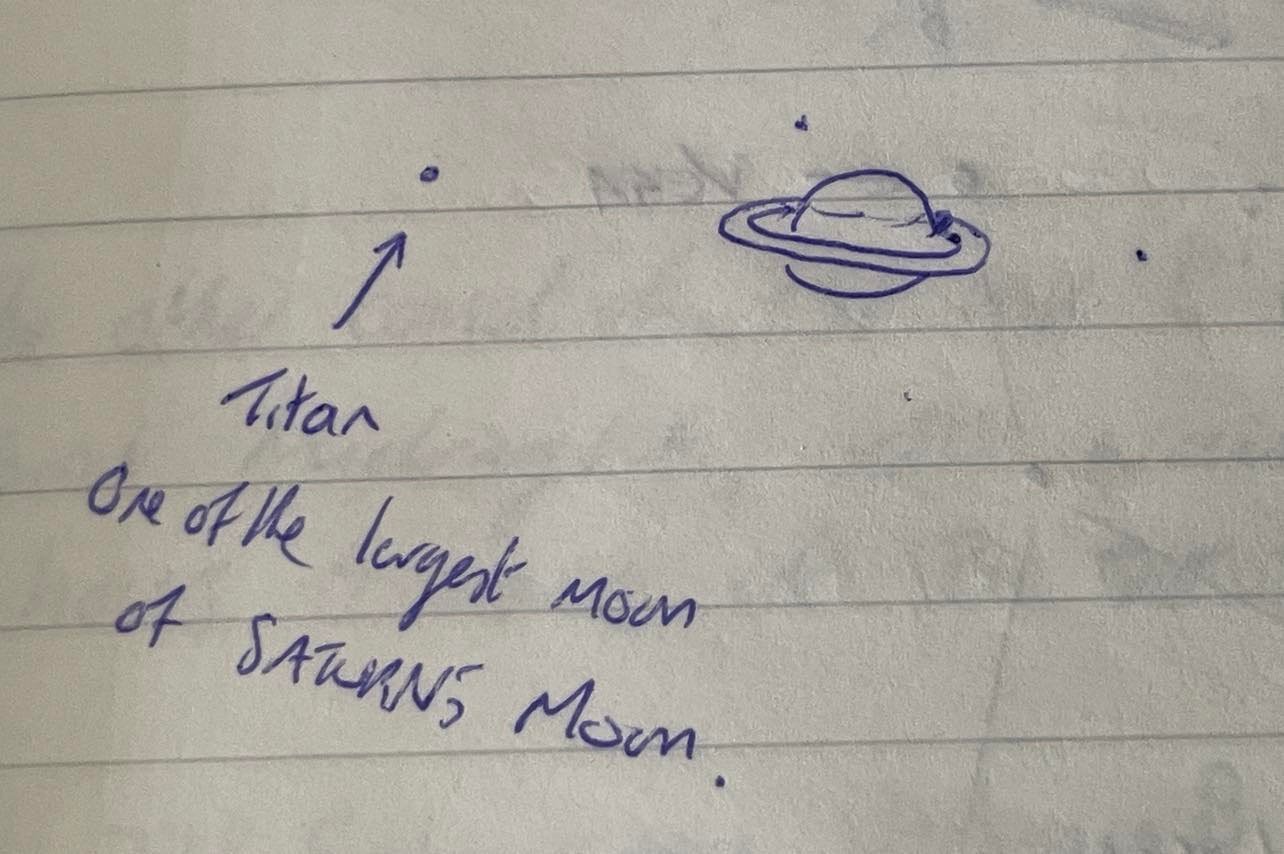 Titan
One of the largest Moon
of SATURNS Moon.